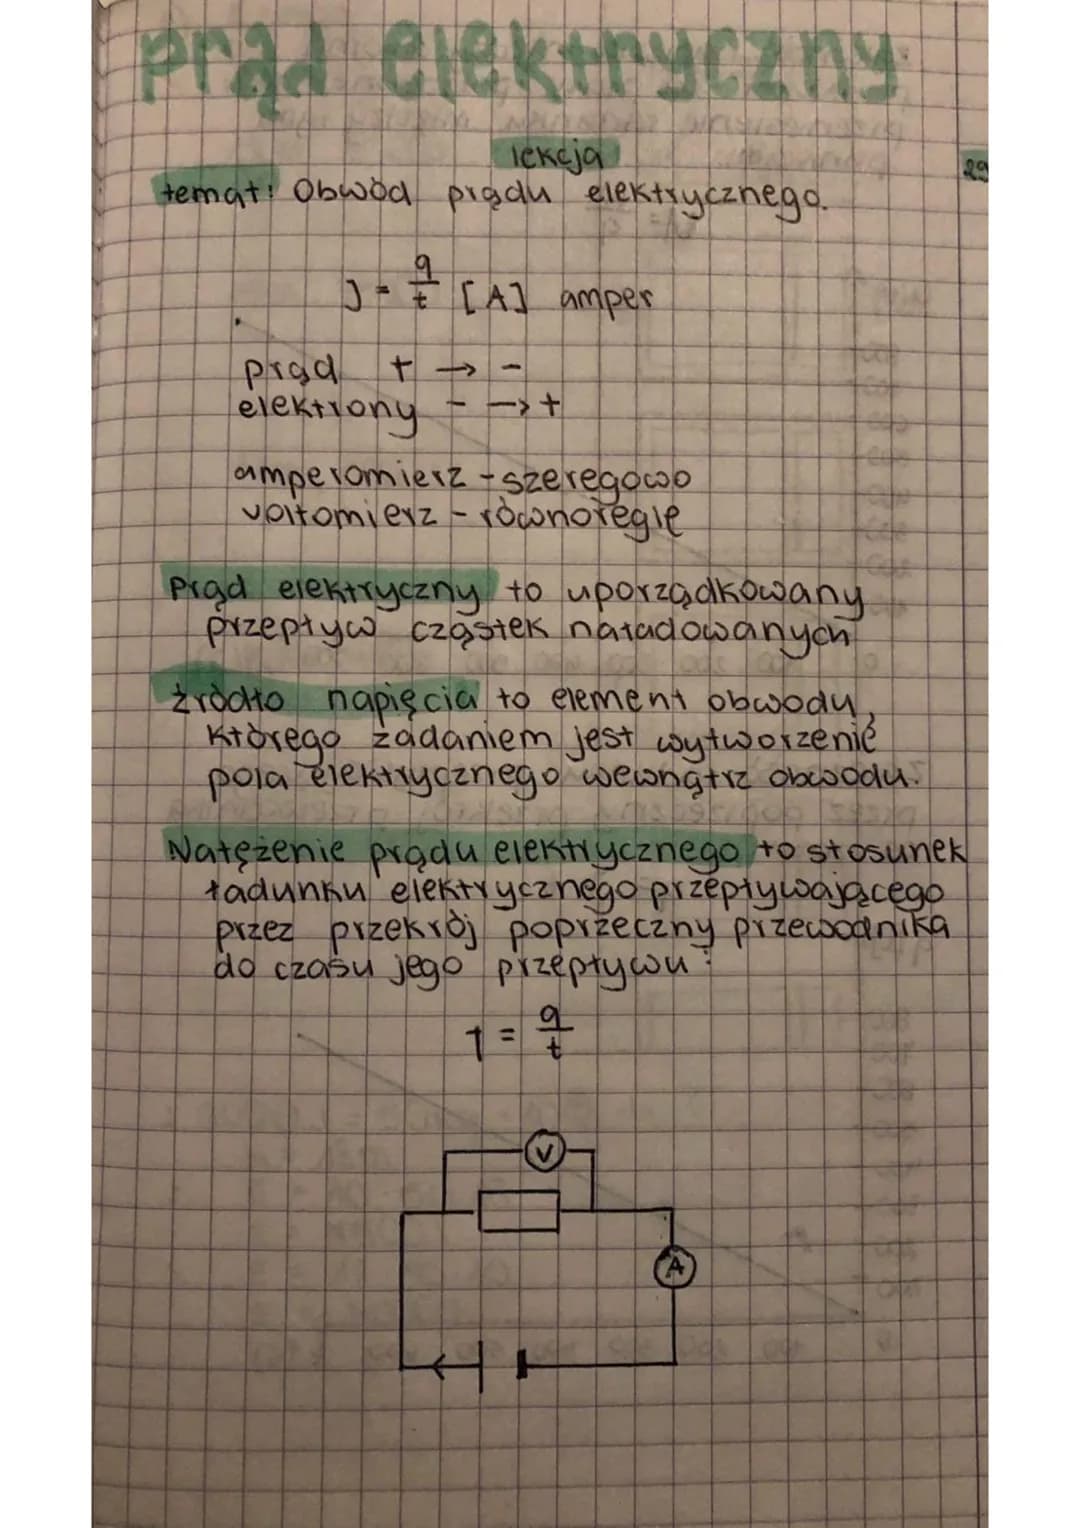 prąd elektryczny
lekcja
29
temat: Obwód prądu elektrycznego.
J = q/t [A] amper
prąd + → -
elektrony - → +
amperomierz - szeregowo
voltomierz - równolegle
Prąd elektryczny to uporządkowany
przepływ cząstek naładowanych
źródło napięcia to element obwodu,
którego zadaniem jest wytworzenie
pola elektrycznego wewnątrz obwodu.
Natężenie prądu elektrycznego to stosunek
ładunku elektrycznego przepływającego
przez przekrój poprzeczny przewodnika
do czasu jego przepływu:
I = q/t
V
A